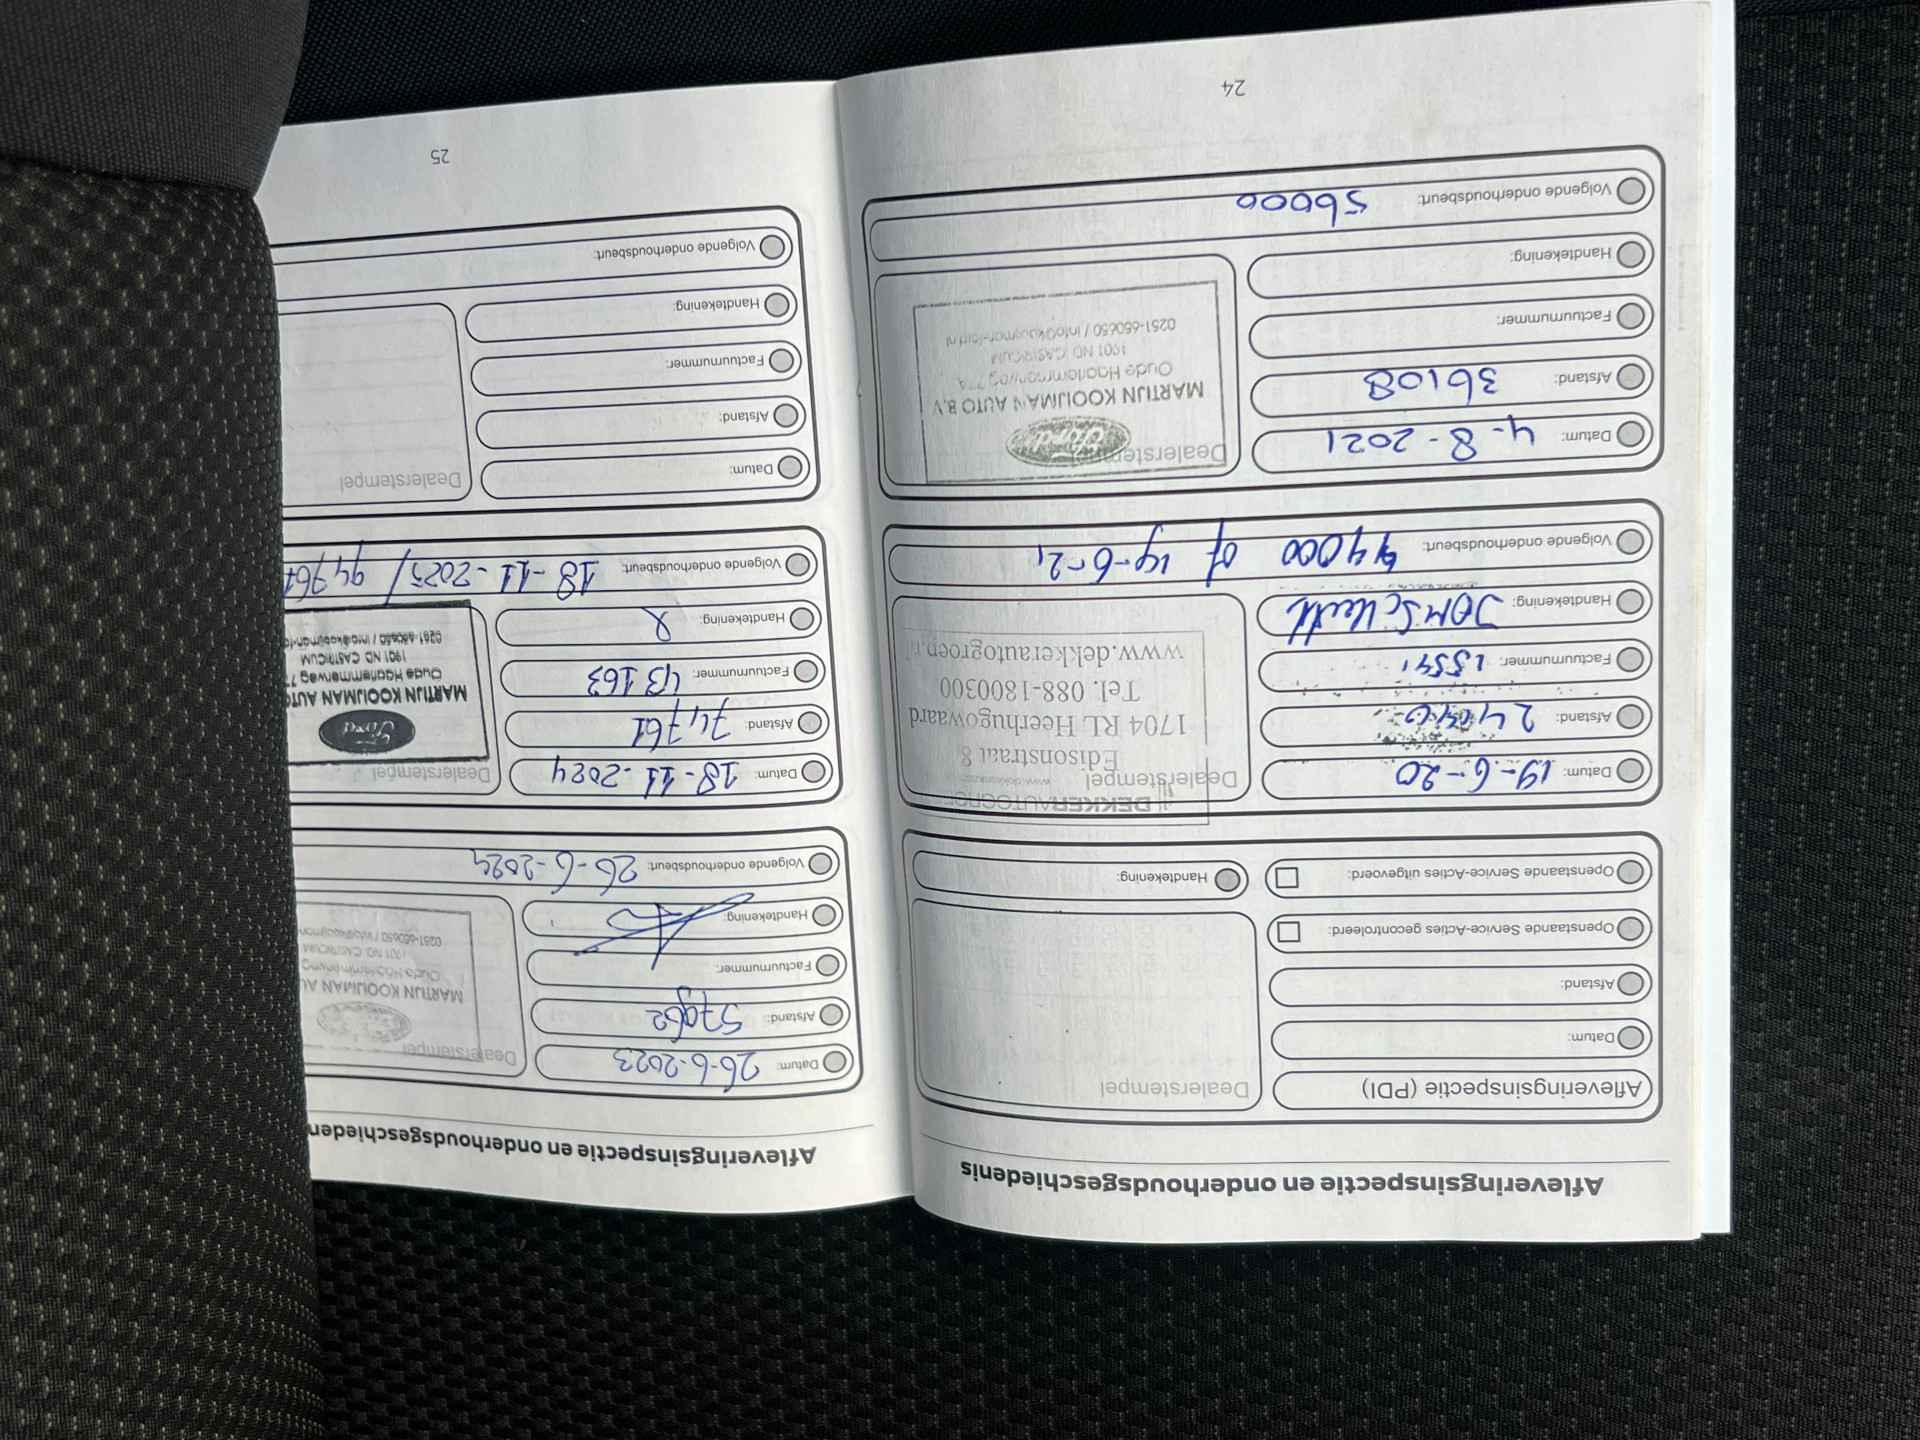 Afleveringsinspectie en onderhoudsgeschiedenis
Afleveringsinspectie (PDI)
Datum:
Afstand:
Openstaande Service-Acties gecontroleerd:
Openstaande Service-Acties uitgevoerd:
Dealerstempel
Handtekening:
Datum: 19-6-20
Afstand:
Factuurnummer:
Handtekening:
Volgende onderhoudsbeurt: 44000 of 19-6-21
DEKKERAUTOGROEP
Dealerstempel
Edisonstraat 8
1704 RL Heerhugowaard
Tel. 088-1800300
www.dekkerautogroep.nl
Datum: 4-8-2021
Afstand: 36108
Factuurnummer:
Handtekening:
Volgende onderhoudsbeurt: 56000
Dealerstempel
Ford
MARTIJN KOOIJMAN AUTO B.V.
Oude Haarlemmerweg 77A
1901 ND CASTRICUM
0251-650650 / info@kooijman-ford.nl
24
Afleveringsinspectie en onderhoudsgeschieden
Datum: 26-6-2023
Afstand:
Factuurnummer:
Handtekening:
Volgende onderhoudsbeurt: 26-6-2024
Dealerstempel
MARTIJN KOOIJMAN AU
Oude Haarlemmerweg
1901 ND CASTRICUM
0251-650650 / info@kooijman
Datum: 18-11-2024
Afstand: 74,761
Factuurnummer: 43163
Handtekening:
Volgende onderhoudsbeurt: 18-11-2025 / 94,761
Dealerstempel
Ford
MARTIJN KOOIJMAN AUTO
Oude Haarlemmerweg 77
1901 ND CASTRICUM
0251-650650 / info@kooijman-fo
Datum:
Afstand:
Factuurnummer:
Handtekening:
Volgende onderhoudsbeurt:
Dealerstempel
25